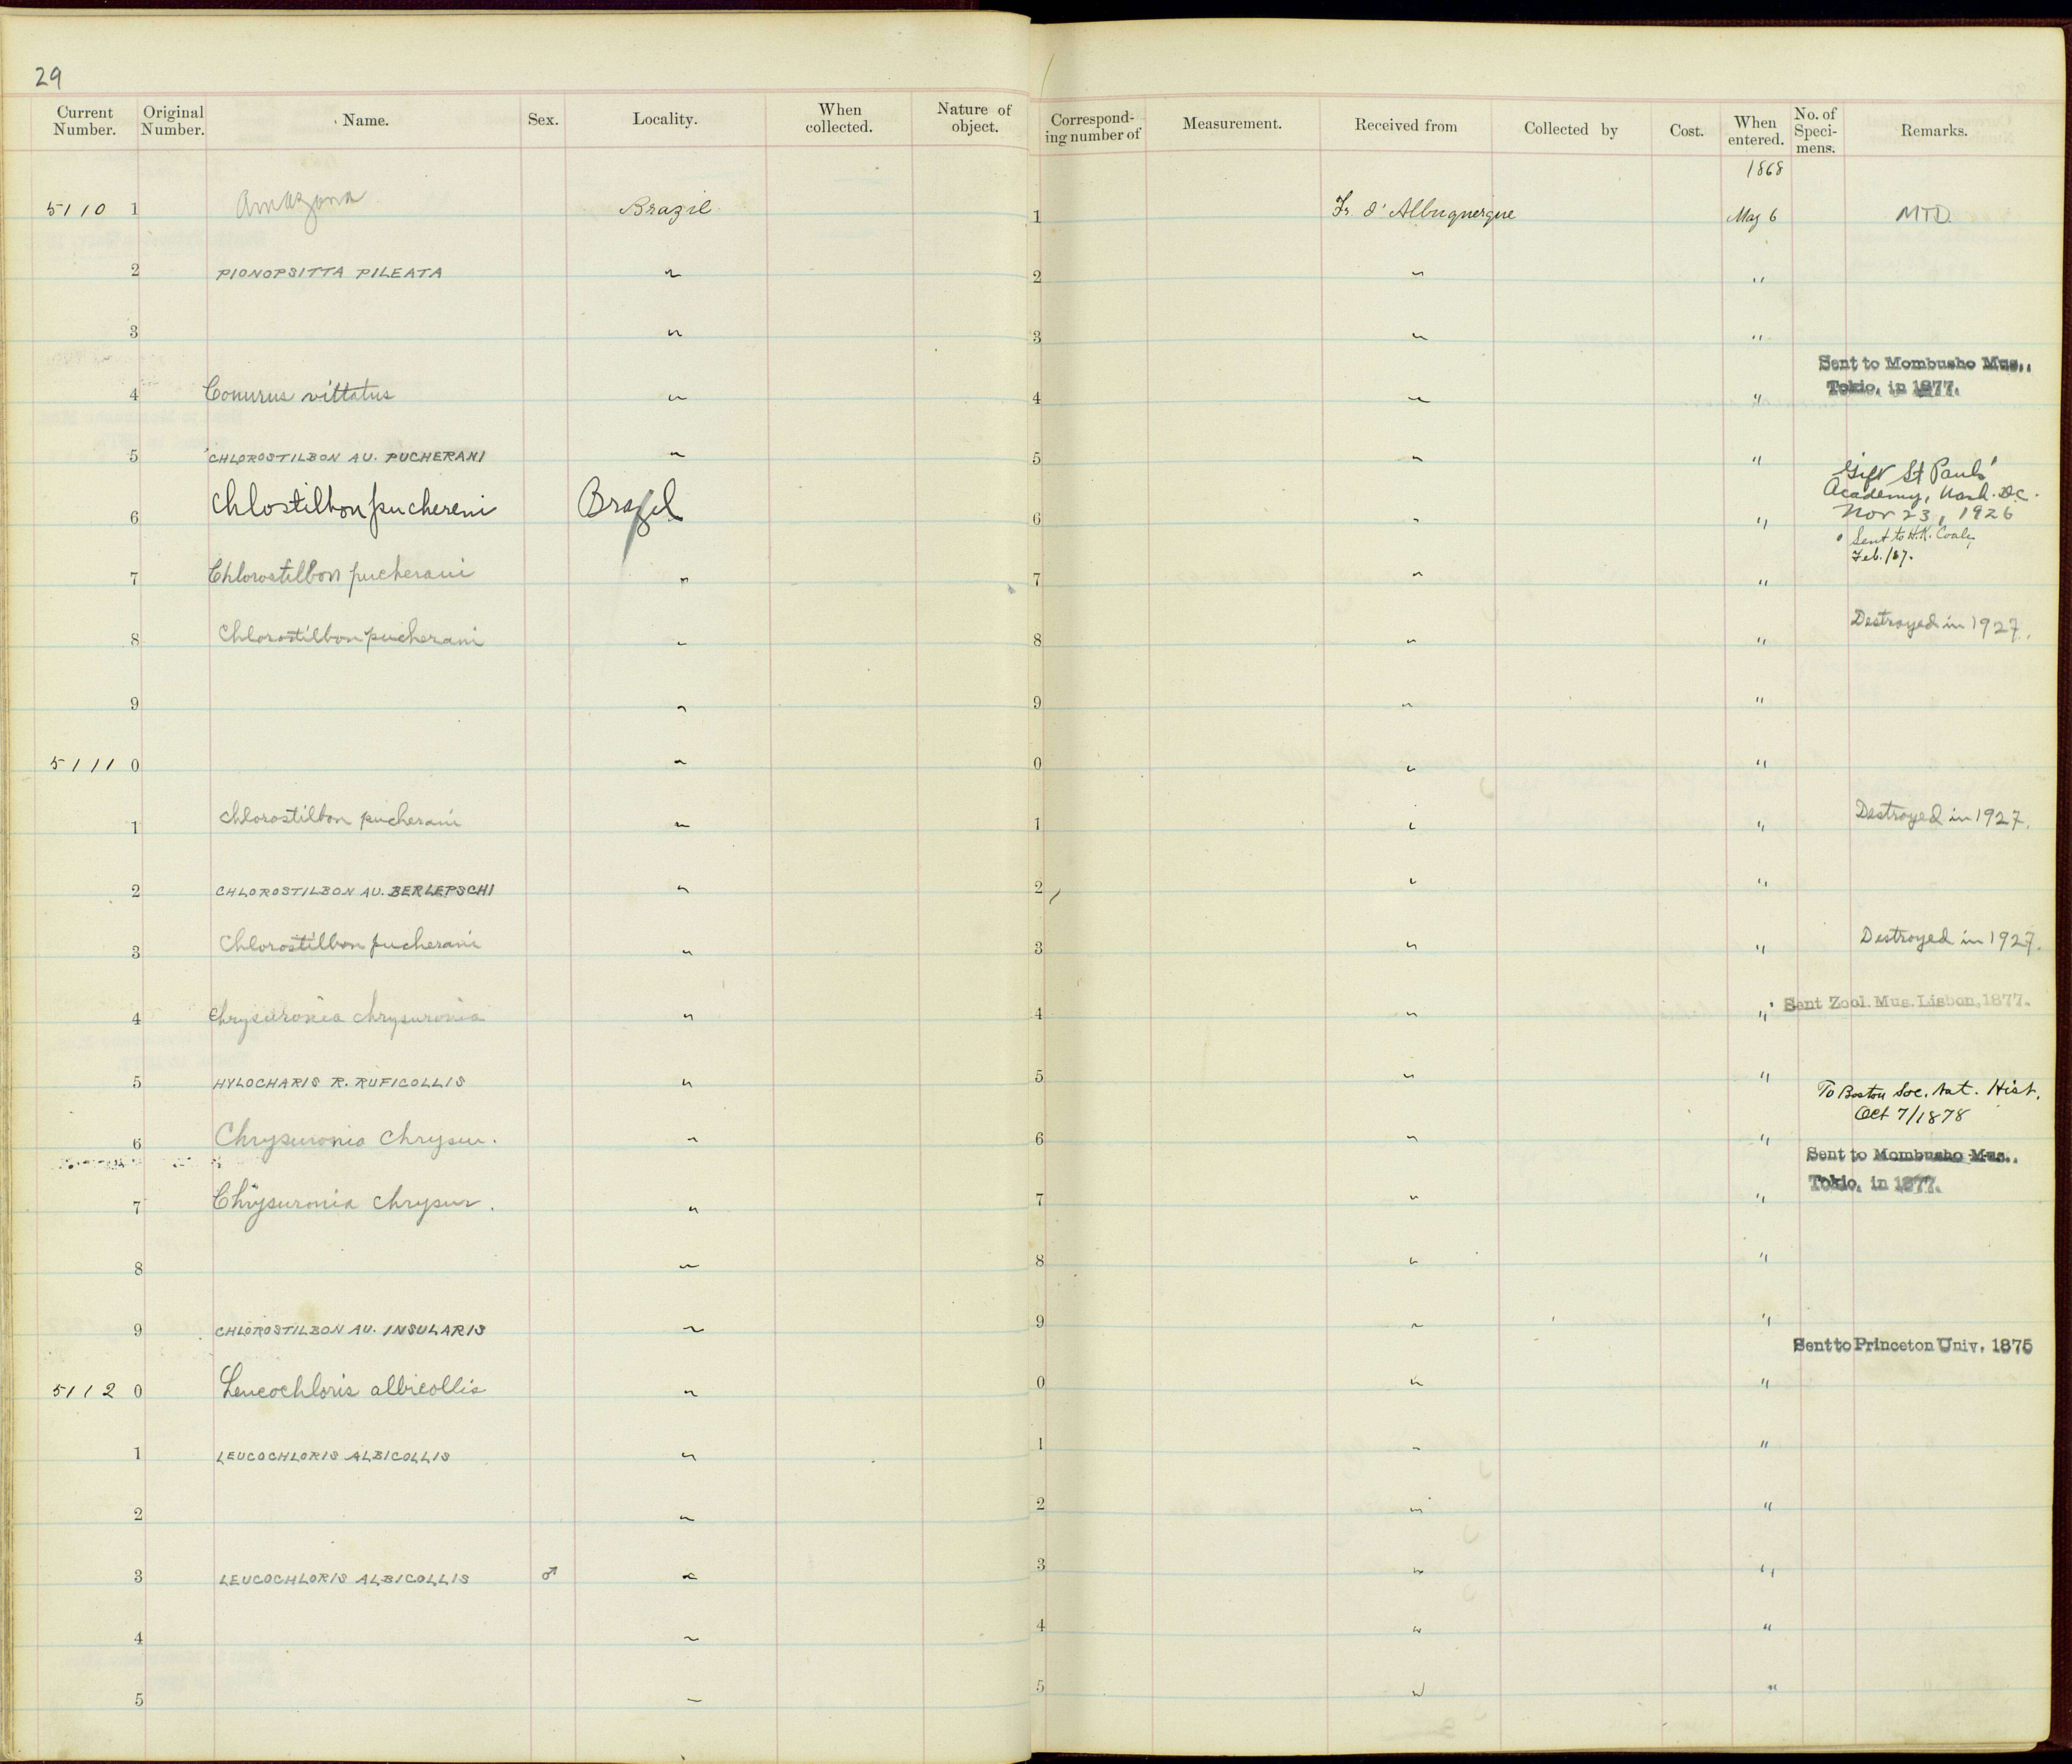 29
Current Number. Original Number. Name. Sex. Locality. When collected. Nature of object. Correspond- ing number of Measurement. Received from Collected by Cost. When entered. No. of Speci- mens. Remarks.
1868
5110 1 Amazona Brazil 1 Fr. d'Albuquerque May 6 MTD
2 PIONOPSITTA PILEATA " 2 " "
3 " 3 " "
Sent to Mombusho Mus.,
Tokio, in 1877.
4 Conurus vittatus " 4 " "
5 CHLOROSTILBON AU. PUCHERANI " 5 " "
Gift St Pauls'
Academy, Wash. DC.
6 Chlostilbon puchereni Brazil 6 " " Nov 23, 1926
Sent to H.K. Coale,
Feb. /87.
7 Chlorostilbon pucherani " 7 " "
8 Chlorostilbon pucherani " 8 " " Destroyed in 1927.
9 " 9 " "
5111 0 " 0 " "
1 Chlorostilbon pucherani " 1 " " Destroyed in 1927.
2 CHLOROSTILBON AU. BERLEPSCHI " 2 " "
3 Chlorostilbon pucherani " 3 " " Destroyed in 1927.
4 Chrysuronia chrysuronia " 4 " " Sent Zool. Mus. Lisbon, 1877.
5 HYLOCHARIS R. RUFICOLLIS " 5 " "
To Boston Soc. Nat. Hist.
Oct 7/1878
6 Chrysuronia Chrysur. " 6 " "
Sent to Mombusho Mus.,
Tokio, in 1877.
7 Chrysuronia Chrysur. " 7 " "
8 " 8 " "
9 CHLOROSTILBON AU. INSULARIS " 9 " "
Sent to Princeton Univ. 1875
5112 0 Leucochloris albicollis " 0 " "
1 LEUCOCHLORIS ALBICOLLIS " 1 " "
2 " 2 " "
3 LEUCOCHLORIS ALBICOLLIS ♂ " 3 " "
4 " 4 " "
5 " 5 " "